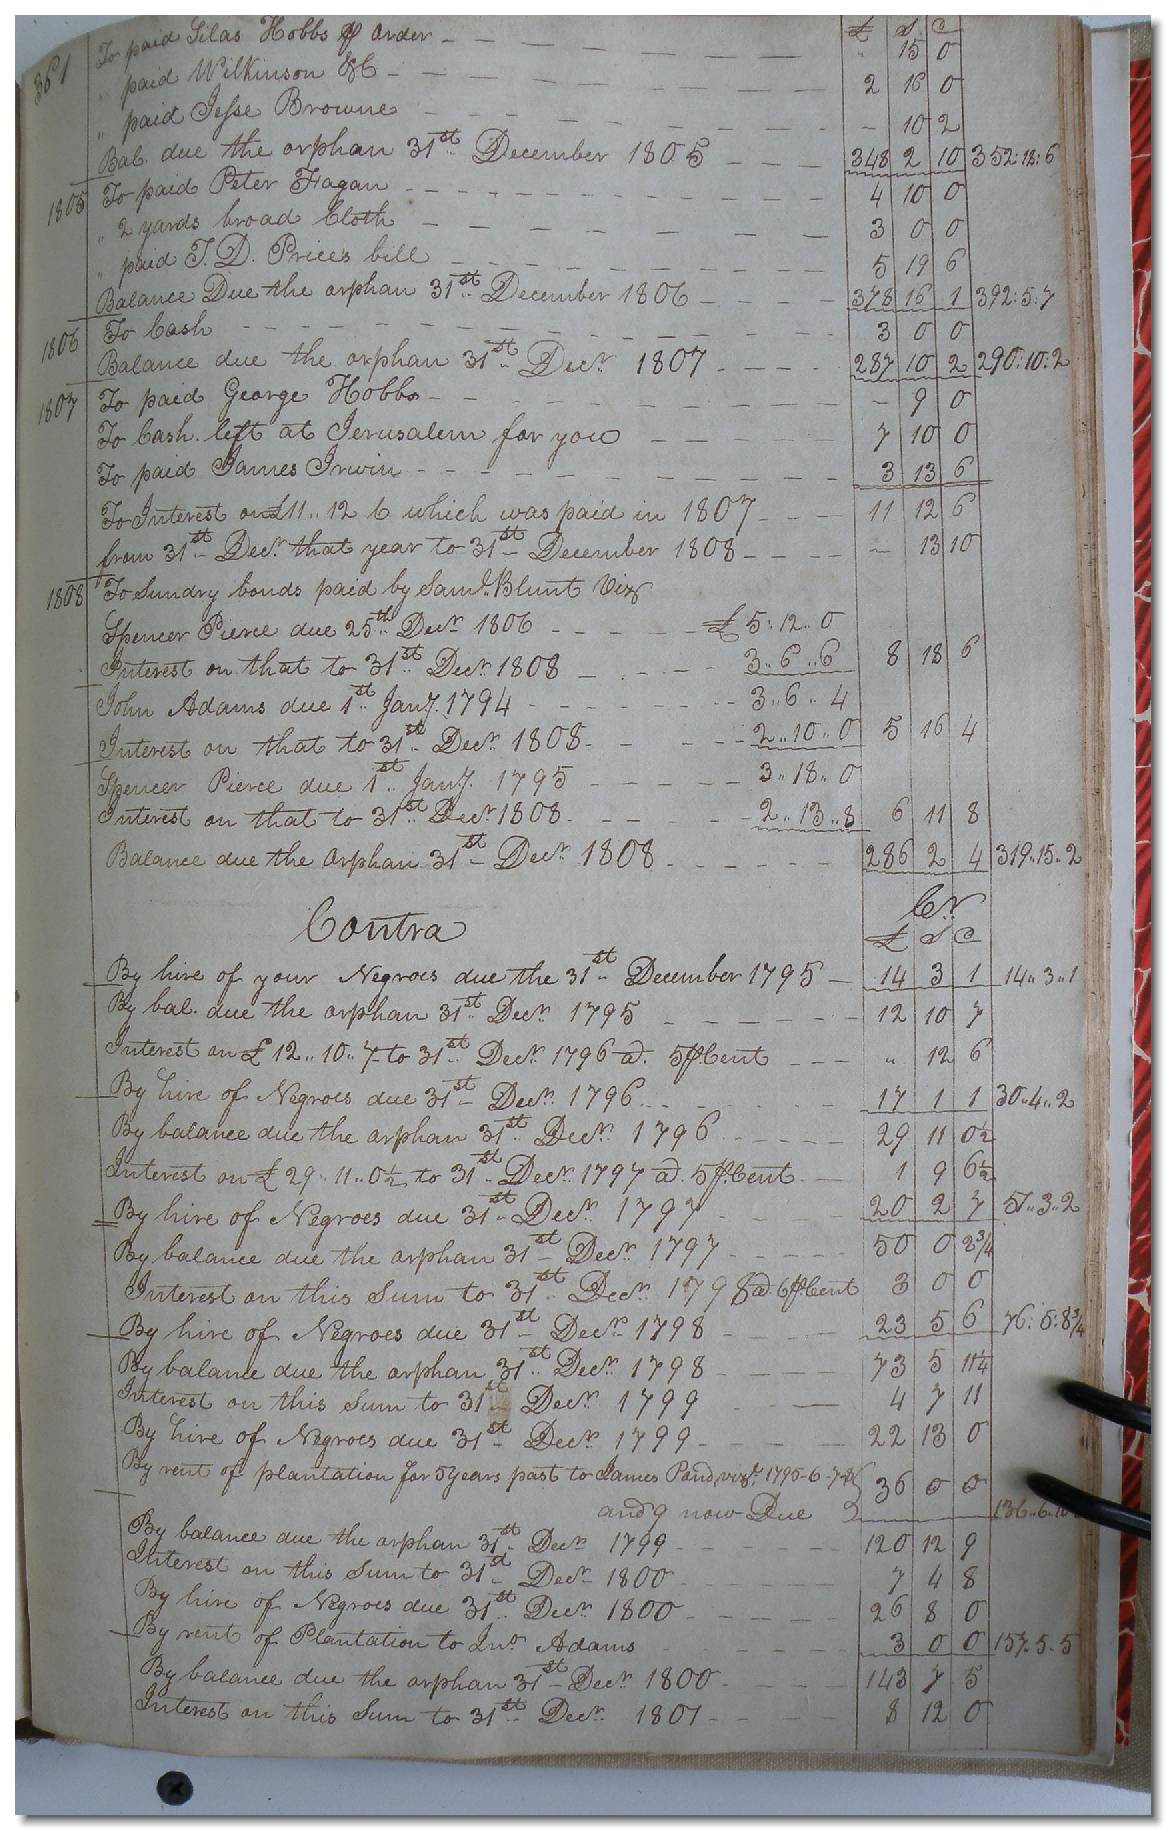 361 To paid Silas Hobbs ℘ order - - - - - " 15 0
" paid Wilkinson &C - - - - - 2 16 0
" paid Jesse Browne - - - - - - 10 2
Bal. due the orphan 31st December 1805 - - - 348 2 10 352:18:6
1805 To paid Peter Fagan - - - - - 4 10 0
" 2 yards broad Cloth - - - - - 3 0 0
" paid T. D. Price's bill - - - - - 5 19 6
Balance Due the orphan 31st December 1806 - - - - 378 16 1 392:5:7
1806 To Cash - - - - - 3 0 0
Balance due the orphan 31st Decr. 1807 - - - - 287 10 2 290:10:2
1807 To paid George Hobbs - - - - - - 9 0
To Cash left at Jerusalem for you - - - - 7 10 0
To paid James Irwin - - - - - 3 13 6
To Interest on £11..12 6 which was paid in 1807 - - - 11 12 6
from 31st Decr. that year to 31st December 1808 - - - - - 13 10
1808 To Sundry bonds paid by Saml. Blunt Viz
Spencer Pierce due 25th Decr. 1806 - - - - £ 5:12..0
Interest on that to 31st Decr. 1808 - - - - 3..6..6 8 18 6
John Adams due 1st Jany. 1794 - - - - - 3..6..4
Interest on that to 31st Decr. 1808 - - - - 2..10..0 5 16 4
Spencer Pierce due 1st Jany. 1795 - - - - 3..18..0
Interest on that to 31st Decr. 1808 - - - - 2..13..8 6 11 8
Balance due the orphan 31st Decr. 1808 - - - - 286 2 4 319..15..2
Contra Cr.
£ S C
By hire of your Negroes due the 31st December 1795 - 14 3 1 14..3..1
By bal. due the orphan 31st Decr. 1795 - - - - - 12 10 7
Interest on £ 12..10..7 to 31st Decr. 1796 @ 5 ℘Cent - - " 12 6
By hire of Negroes due 31st Decr. 1796 - - - - 17 1 1 30..4..2
By balance due the orphan 31st Decr. 1796 - - - - 29 11 0½
Interest on £ 29..11..0½ to 31st Decr. 1797 @ 5 ℘Cent. - - 1 9 6½
By hire of Negroes due 31st Decr. 1797 - - - - 20 2 7 51..3..2
By balance due the orphan 31st Decr. 1797 - - - - 50 0 2¾
Interest on this Sum to 31st Decr. 1798 @ 6 ℘Cent 3 0 0
By hire of Negroes due 31st Decr. 1798 - - - - 23 5 6 76:5:8¾
By balance due the orphan 31st Decr. 1798 - - - - 73 5 11¼
Interest on this Sum to 31st Decr. 1799 - - - 4 7 11
By hire of Negroes due 31st Decr. 1799 - - - - 22 13 0
By rent of plantation for 5 years past to James Pond vizt. 1795-6-7-8 36 0 0
and 9 now Due 136..6..10
By balance due the orphan 31st Decr. 1799 - - - - 120 12 9
Interest on this Sum to 31st Decr. 1800 - - - - 7 4 8
By hire of Negroes due 31st Decr. 1800 - - - - 26 8 0
By rent of Plantation to Jno. Adams - - - - 3 0 0 157..5..5
By balance due the orphan 31st Decr. 1800 - - - - 143 7 5
Interest on this Sum to 31st Decr. 1801 - - - - 8 12 0